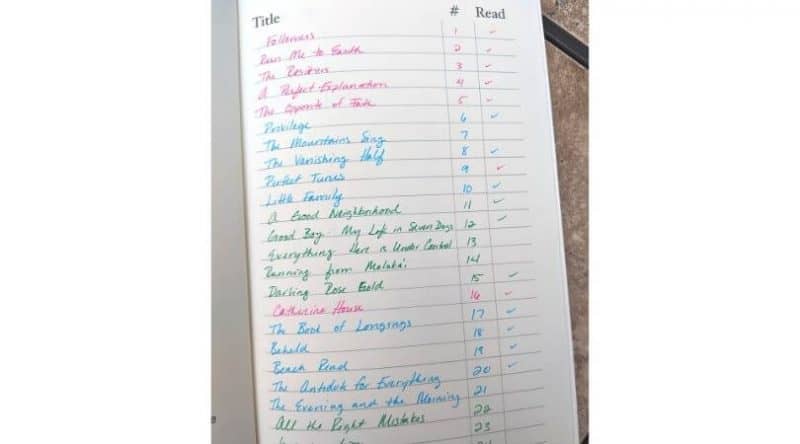 Title # Read
Followers 1 ✓
Run Me to Earth 2 ✓
The Resisters 3 ✓
A Perfect Explanation 4 ✓
The Opposite of Fate 5 ✓
Privilege 6 ✓
The Mountains Sing 7
The Vanishing Half 8 ✓
Perfect Tunes 9 ✓
Little Family 10 ✓
A Good Neighborhood 11 ✓
Good Boy: My Life in Seven Dogs 12 ✓
Everything Here is Under Control 13
Running from Moloka'i 14
Darling Rose Gold 15 ✓
Catherine House 16 ✓
The Book of Longings 17 ✓
Beheld 18 ✓
Beach Read 19 ✓
The Antidote for Everything 20 ✓
The Evening and the Morning 21
All the Right Mistakes 22
23